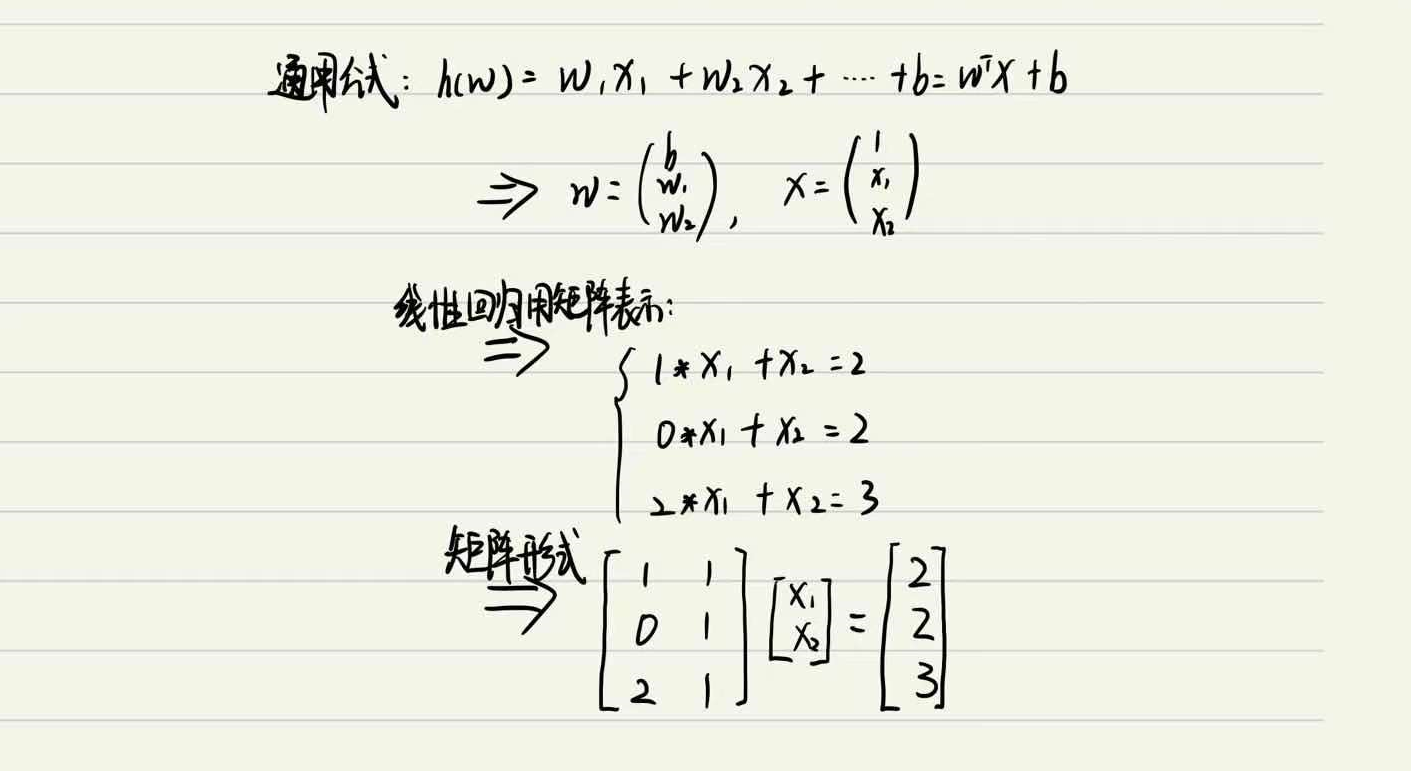 通用公式: h(w) = w₁x₁ + w₂x₂ + ····· + b = wᵀx + b
⇒ w = (b w₁ w₂), x = (1 x₁ x₂)
线性回归用矩阵表示:
⇒ { 1*x₁ + x₂ = 2
0*x₁ + x₂ = 2
2*x₁ + x₂ = 3
矩阵形式
⇒ [1 1
0 1
2 1] [x₁ x₂] = [2 2 3]